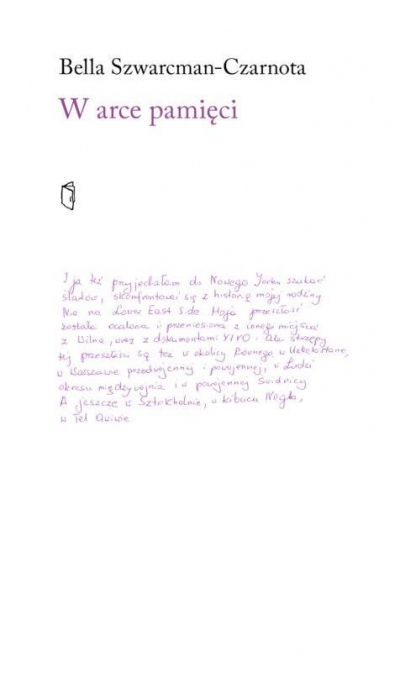 Bella Szwarcman-Czarnota
W arce pamięci
I ja też przyjechałam do Nowego Jorku szukać
śladów, skonfrontować się z historią mojej rodziny
Nie na Lower East Side. Moja przeszłość
została ocalona i przeniesiona z innego miejsca
z Wilna, wraz z dokumentami YIVO. Ale strzępy
tej przeszłości są też w okolicy Równego, w Uzbekistanie,
w Warszawie przedwojennej i powojennej, w Łodzi
okresu międzywojnia i w powojennej Świdnicy
A jeszcze w Sztokholmie, w kibucu Negba,
w Tel Awiwie